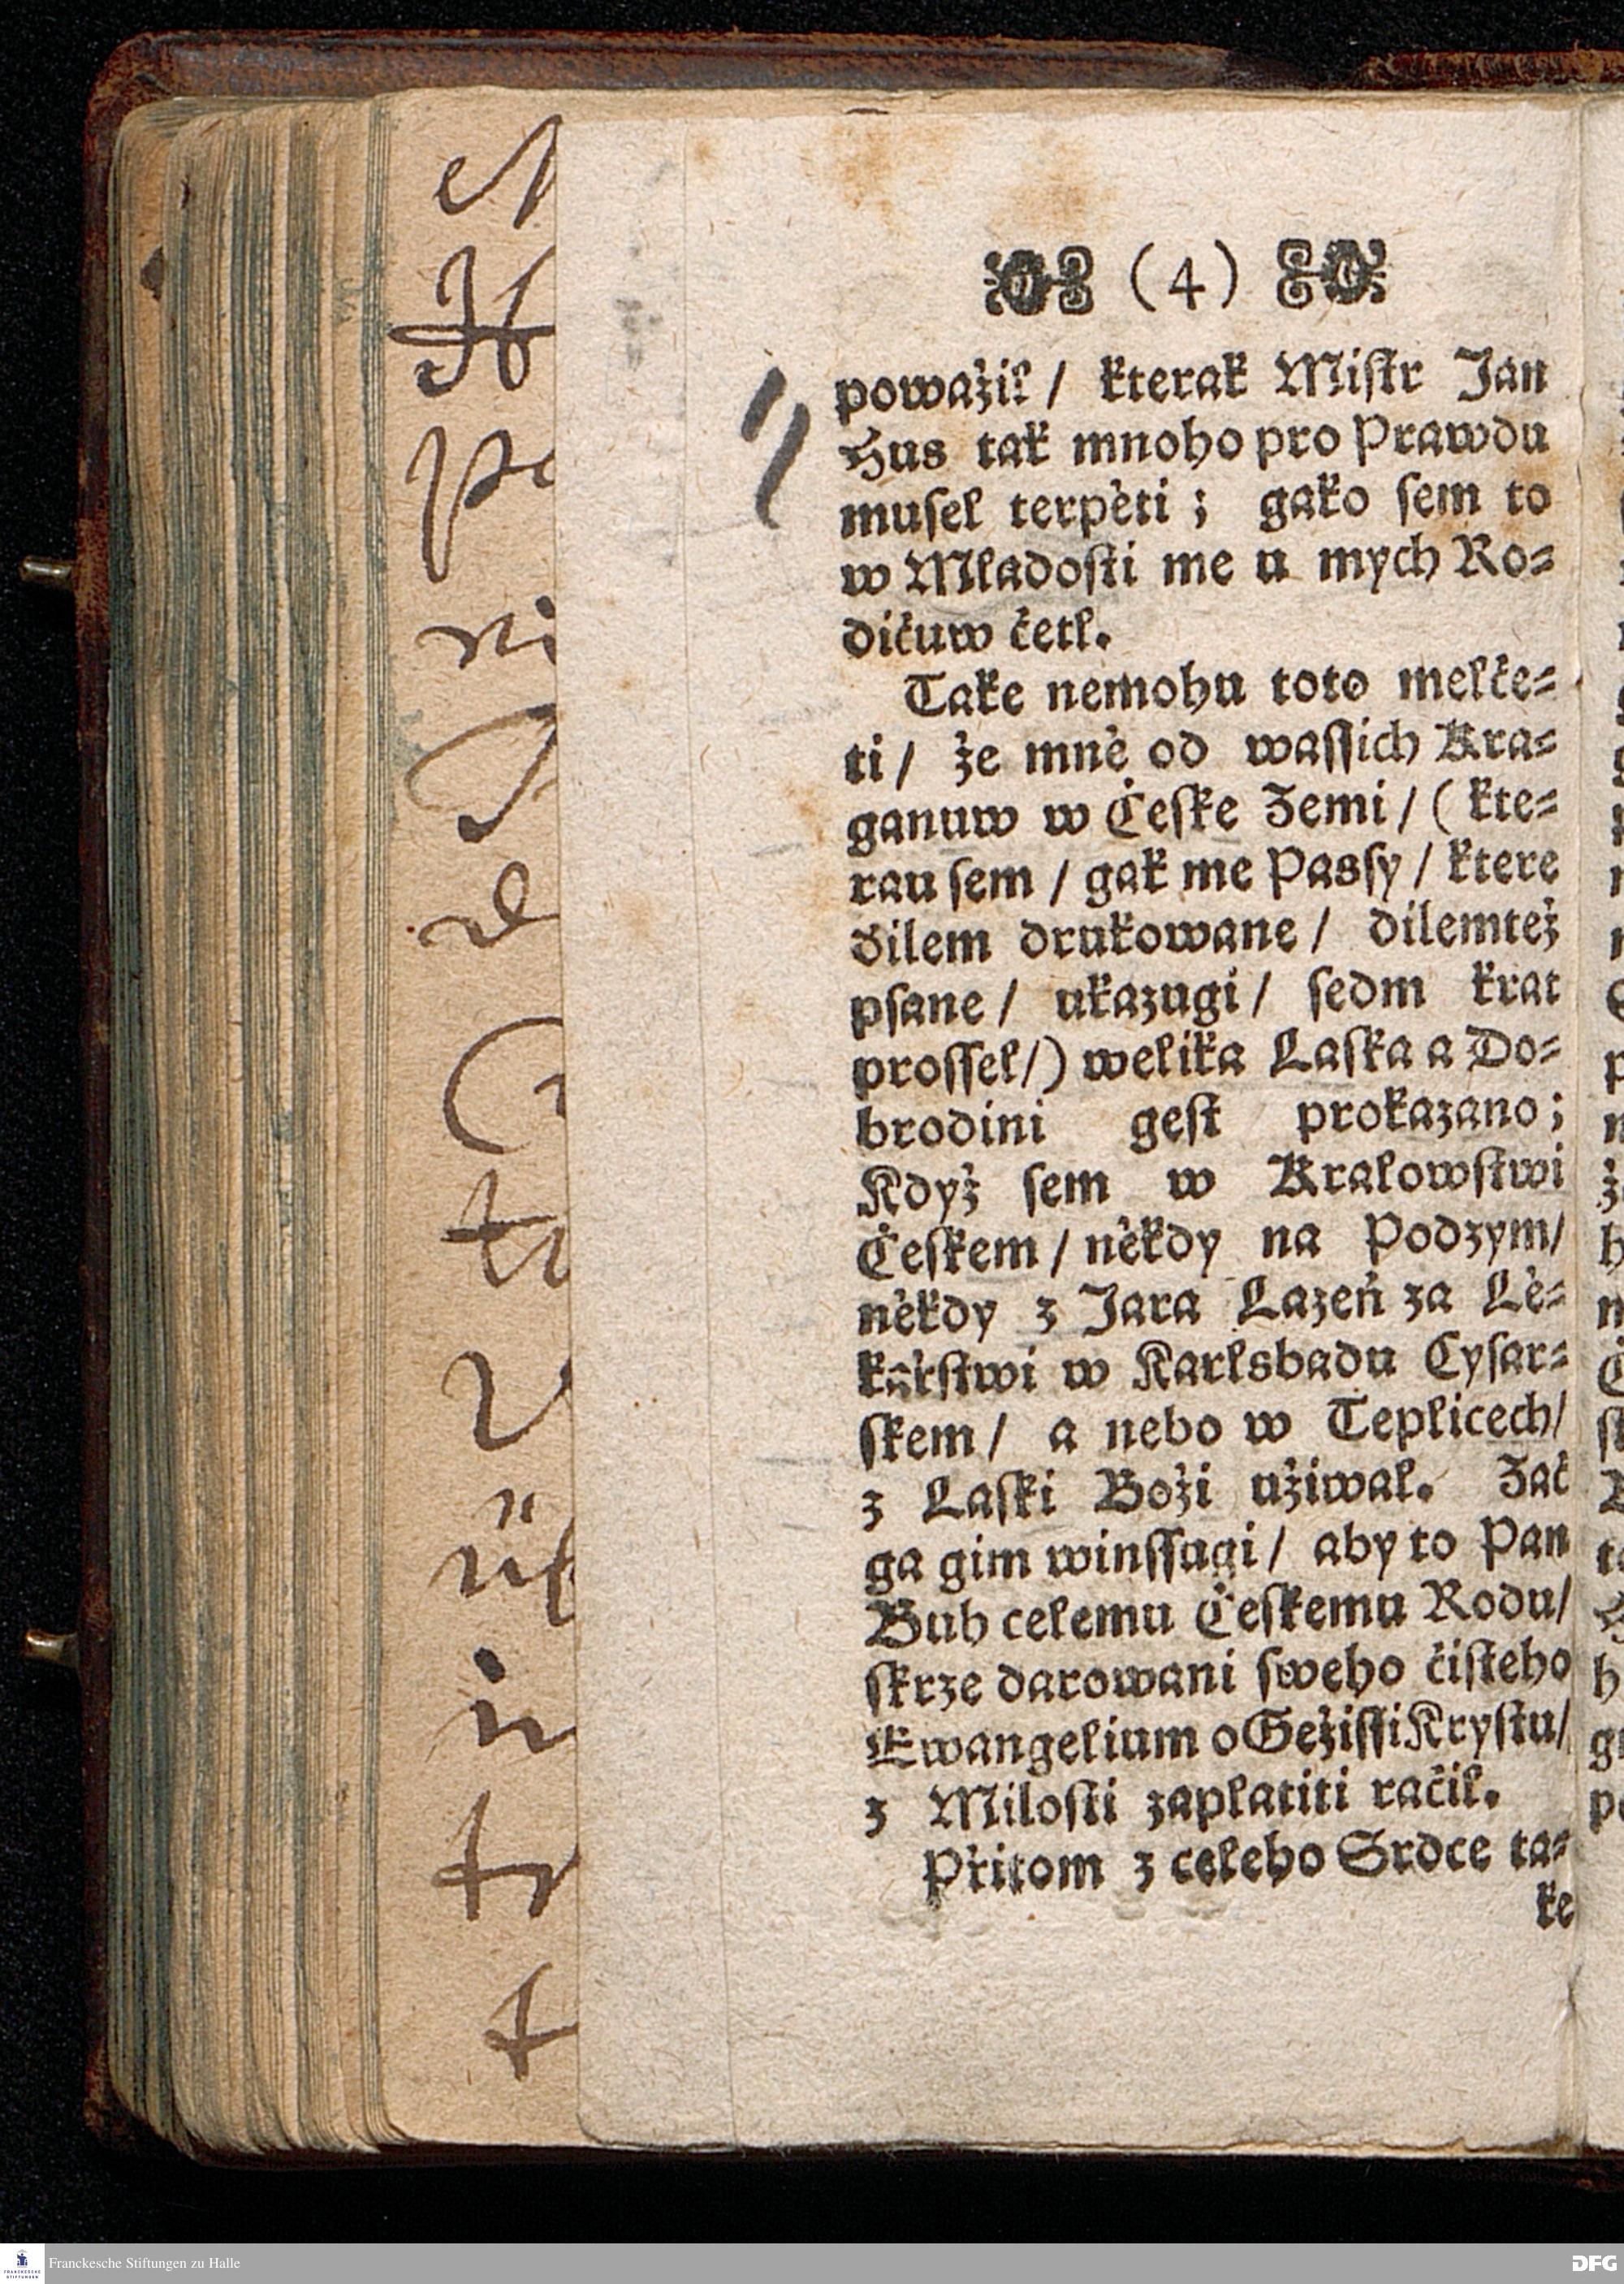 (4)
powažil / kterak Miſtr Jan
Hus tak mnoho pro Prawdu
muſel terpèti ; gako ſem to
w Mladoſti me u mych Ro=
dičuw četl.
Take nemohu toto melče=
ti / že mně od waſſich Kra=
ganuw w Čeſke Zemi / ( kte=
rau ſem / gak me Pasſy / ktere
dilem drukowane / dilemtež
pſane / ukazugi / ſedm krat
proſſel/) welika Laſka a Do=
brodini geſt prokazano ;
Když ſem w Kralowſtwi
Českem / někdy na Podzym/
někdy z Jara Lazeň za Lě=
kařſtwi w Karlsbadu Cyſar=
ſkem / a nebo w Teplicech/
z Laſki Boži uživwal. Zač
ga gim winſſugi / aby to Pan
Buh celemu Českemu Rodu/
ſkrze darowani ſweho čiſteho
Ewangelium o Gežiſſi Kryſtu/
z Miloſti zaplatiti račil.
Přitom z celeho Srdce ta=
ke
Franckesche Stiftungen zu Halle
DFG